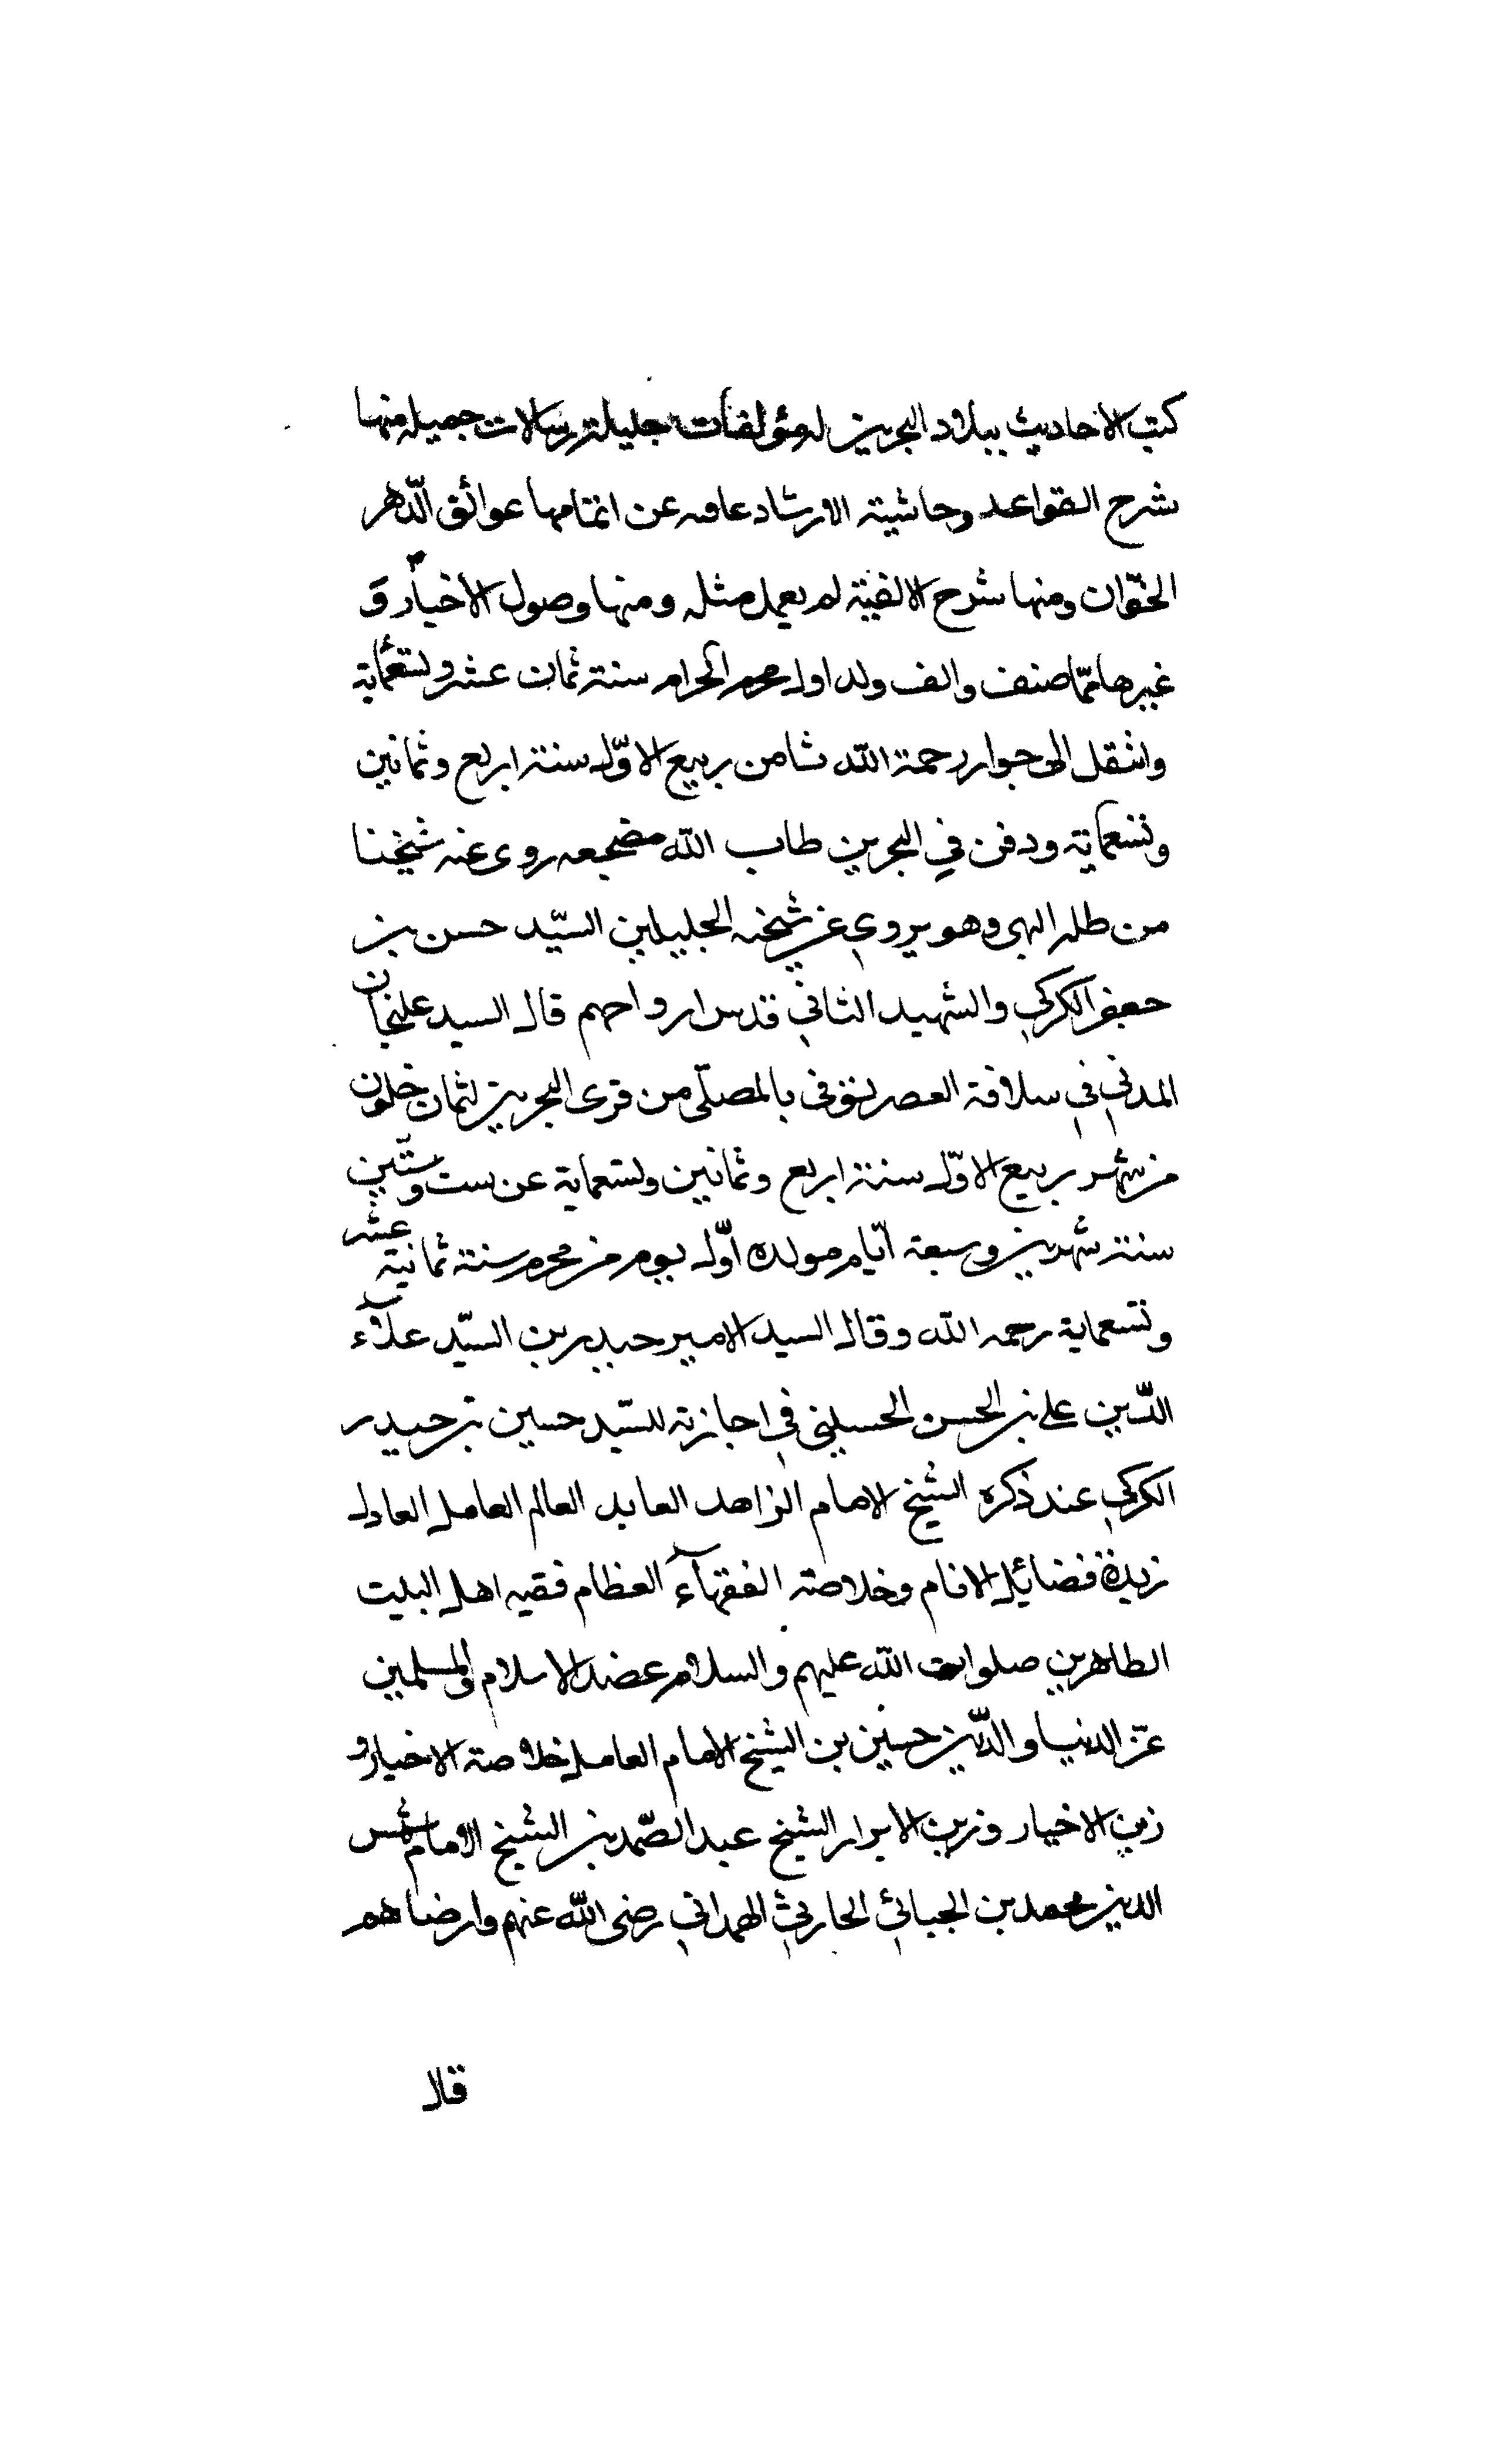 كتب الاحاديث ببلاد البحرين له مؤلفات جليلة رسالات جميله منها
شرح القواعد وحاشيته الارشاد عاقه عن اتمامها عوائق الدّهر
الخوّان ومنها شرح الالفيّة لم يعمل مثله ومنها وصول الاخيار وَ
غيرها ممّا صنف والف ولد اول محرم الحرام سنة ثمان عشر وتسعمائة
وانتقل الى جوار رحمة اللّه ثامن ربيع الاوّل سنة اربع وثمانين
وتسعماية ودفن في البحرين طاب اللّه مضجعه روى عنه شيخنا
من طله البهى وهو يروي عن شيخيه الجليلين السيّد حسن بن
جعفر الكركي والشهيد الثاني قدس ارواحهم قال السيد عليخان
المدني في سلافة العصر توفى بالمصلّى من قرى البحرين لثمان خلون
من شهر ربيع الاوّل سنة اربع وثمانين وتسعماية عن ست وستّين
سنة شهرين وسبعة ايّام مولده اوّل يوم من محرم سنة ثمانية عشر
وتسعماية رحمه اللّه وقال السيد الامير حيدر بن السيّد علآء
الدّين على بن الحسن الحسيني في اجازته للسيّد حسين بن حيدر
الكركي عند ذكره الشيخ الامام الزاهد العابد العالم العامل العادل
زبدة فضائل الانام وخلاصة الفقهآء العظام فقيه اهل البيت
الطاهرين صلوات اللّه عليهم والسلام عضد الاسلام والمسلمين
عزّ الدنيا والدّين حسين بن الشيخ الامام العامل خلاصة الاخيار و
زين الاخيار وزين الابرار الشيخ عبد الصّمد بن الشيخ الامام شمس
الدين محمد بن الجبائي الحارثي الهمداني رضى اللّه عنهم وارضاهم
قال